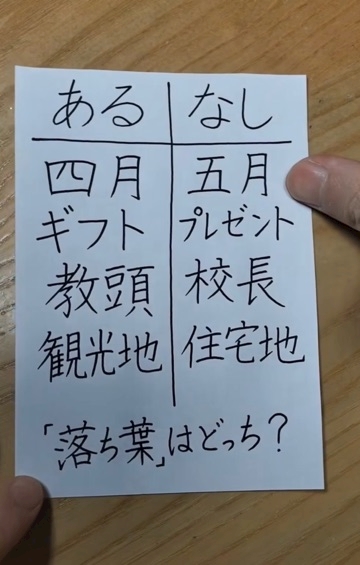 ある なし
四月 五月
ギフト プレゼント
教頭 校長
観光地 住宅地
「落ち葉」はどっち?